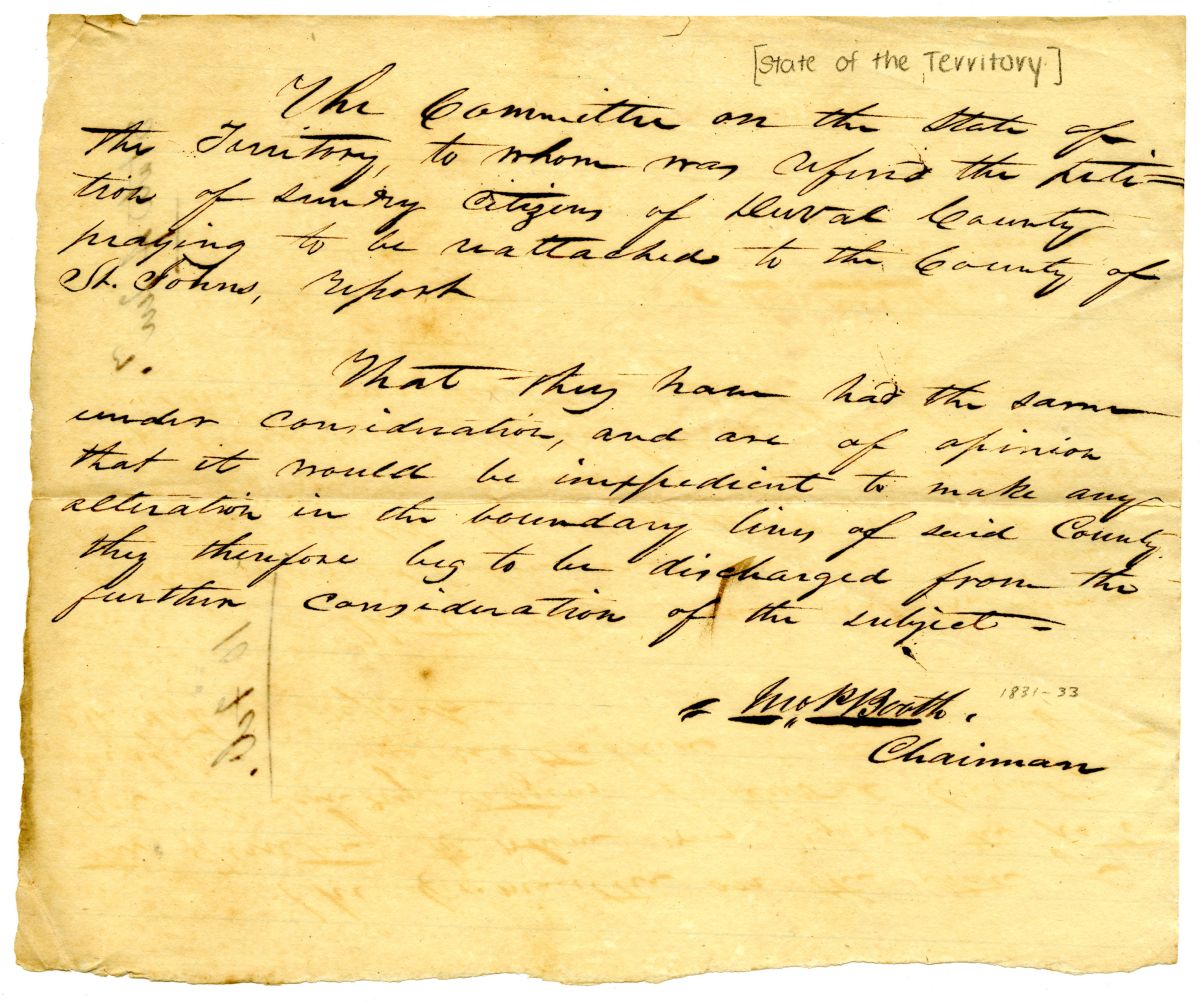 [State of the Territory]
The Committee on the State of
the Territory, to whom was referd the peti=
tion of sundry Citizens of Duval County
praying to be reattached to the County of
St. Johns, report
That they have had the same
under consideration, and are of opinion
that it would be inexpedient to make any
alteration in the boundary lines of said County
they therefore beg to be discharged from the
further consideration of the subject =
Jno P Booth.
1831-33
Chairman